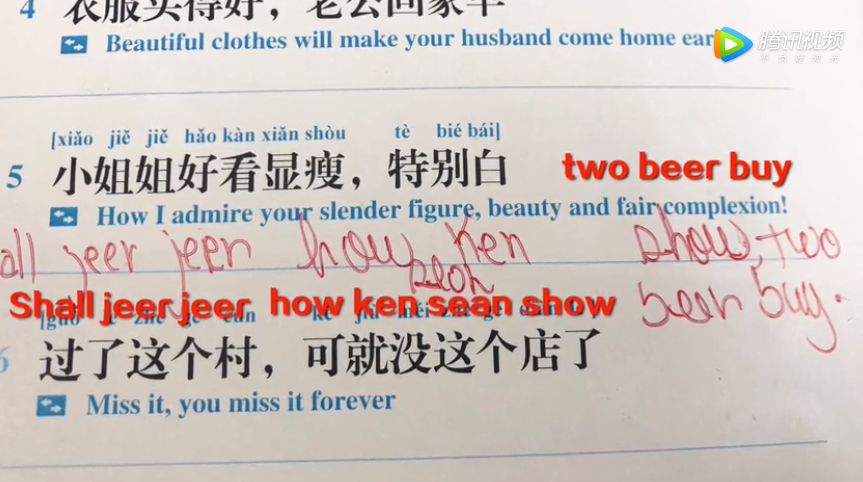 4 衣服买得好，老公回家早
Beautiful clothes will make your husband come home ear
腾讯视频
不负好时光
[xiǎo jiě jiě hǎo kàn xiǎn shòu tè bié bái]
5 小姐姐好看显瘦，特别白 two beer buy
How I admire your slender figure, beauty and fair complexion!
all jeer jeen how ken show, two
sean
Shall jeer jeer how ken sean show
been buy.
6 过了这个村，可就没这个店了
Miss it, you miss it forever